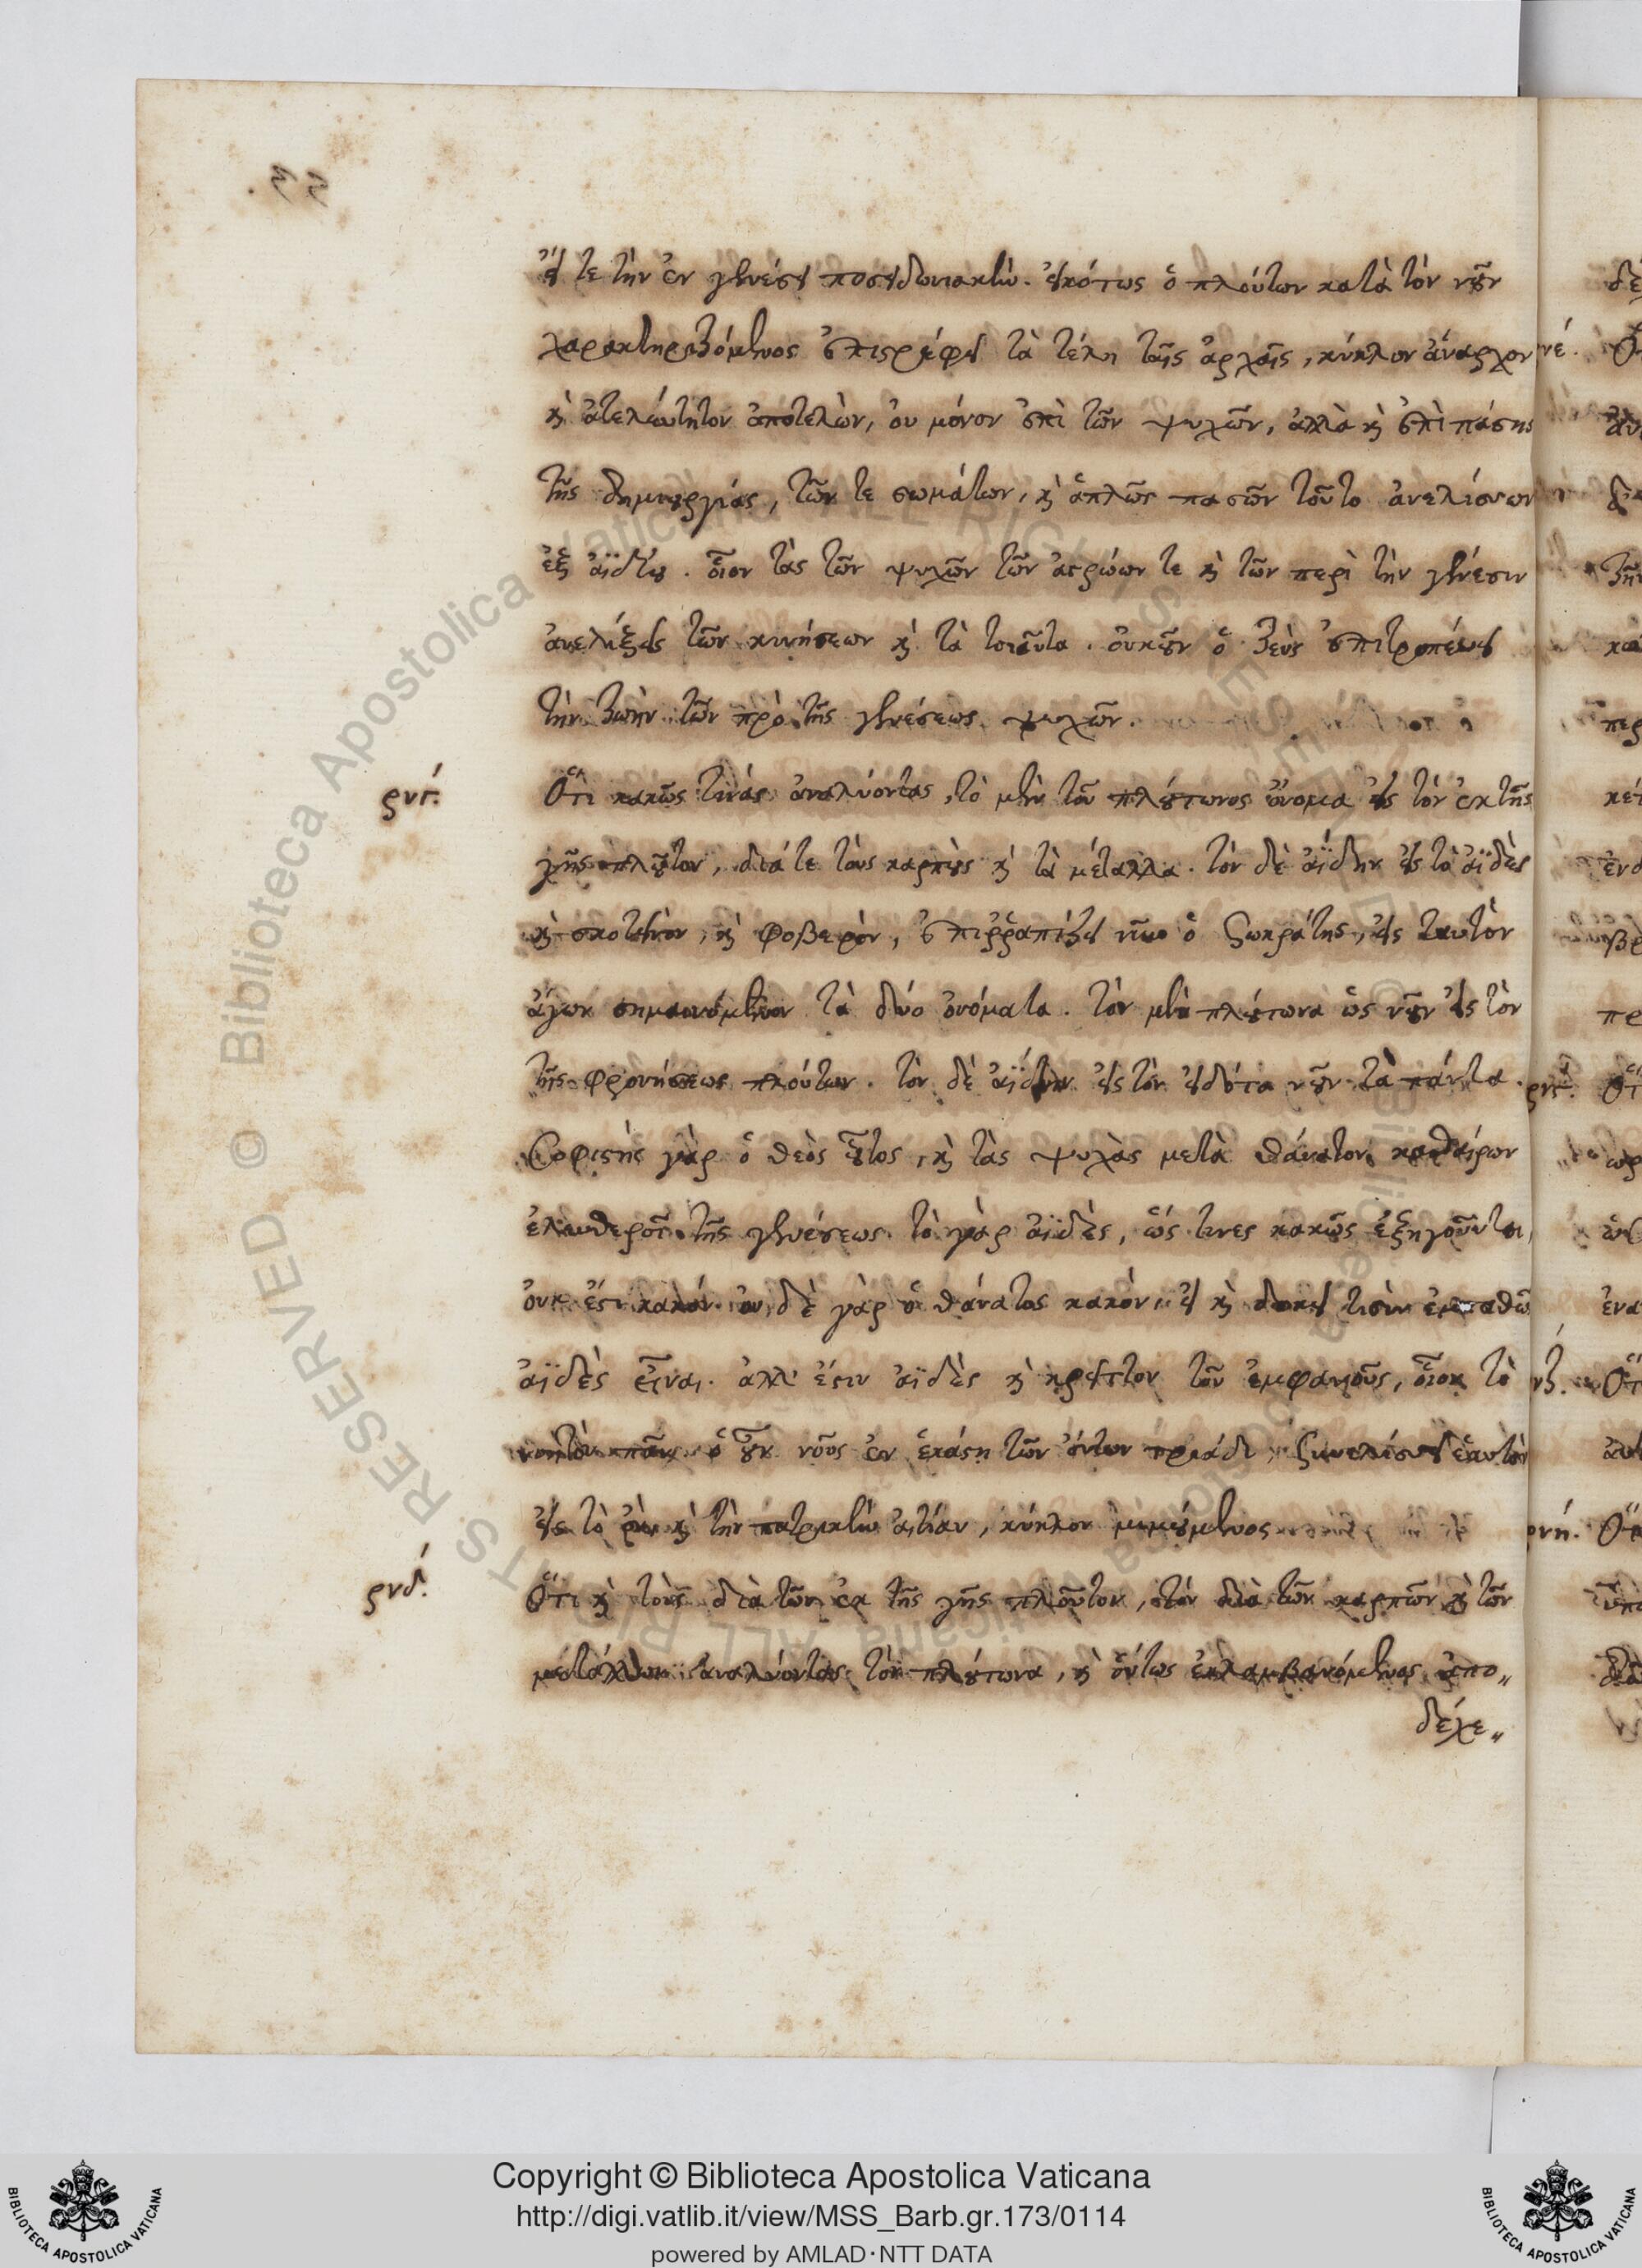 εἴ τε τὴν ἐν γενέσει ποσειδωνιακήν. εἰκότως ὁ πλούτων κατὰ τὸν νοῦν
χαρακτηριζόμενος ἐπιστρέφει τὰ τέλη ταῖς ἀρχαῖς, κύκλον ἄναρχον
καὶ ἀτελεύτητον ἀποτελῶν, οὐ μόνον ἐπὶ τῶν ψυχῶν, ἀλλὰ καὶ ἐπὶ πάσης
τῆς δημιουργίας, τῶν τε σωμάτων, καὶ ἁπλῶς πασῶν τοῦτο ἀνελίσσων
ἐξ ἀϊδίου. οἷον τὰς τῶν ψυχῶν τῶν ἀστρώων τε καὶ τῶν περὶ τὴν γένεσιν
ἀνελίξεις τῶν κινήσεων καὶ τὰ τοιαῦτα. οὐκοῦν ὁ Ζεὺς ἐπιτροπεύει
τὴν ζωὴν τῶν πρὸ τῆς γενέσεως ψυχῶν.
ρνγ΄. Ὅτι κακῶς τινὰς ἀναλύοντας, τὸ μὲν τοῦ πλούτωνος ὄνομα εἰς τὸν ἐκ τῆς
γῆς πλοῦτον, διά τε τοὺς καρποὺς καὶ τὰ μέταλλα. τὸν δὲ ἀΐδην εἰς τὸ ἀϊδὲς
καὶ σκοτεινὸν, καὶ φοβερὸν, ἐπιῤῥαπίζει νῦν ὁ Σωκράτης, εἰς ταυτὸν
ἄγων σημαινόμενον τὰ δύο ὀνόματα. τὸν μὲν πλούτωνα ὡς νοῦν εἰς τὸν
τῆς φρονήσεως πλούτων. τὸν δὲ ἀΐδην εἰς τὸν εἰδότα νοῦν τὰ πάντα.
Σοφιστὴς γὰρ ὁ θεὸς οὗτος, καὶ τὰς ψυχὰς μετὰ θάνατον καθαίρων
ἐλευθεροῖ τῆς γενέσεως. τὸ γὰρ ἀϊδὲς, ὥς τινες κακῶς ἐξηγοῦνται,
οὐκ ἔστι κακόν. οὐ δὲ γὰρ ὁ θάνατος κακὸν, εἰ καὶ δοκεῖ τισὶν
ἀϊδὲς εἶναι. ἀλλ' ἔστιν ἀϊδὲς καὶ κρεῖττον τοῦ ἐμφανοῦς, οἷον τὸ
νοητὸν πᾶν. ὁ οὖν νοῦς ἐν ἑκάστῃ τῶν ὄντων τριάδι, συνελίσσει ἑαυτὸν
εἰς τὸ ὂν καὶ τὴν πατρικὴν αἰτίαν, κύκλον μιμούμενος
ρνδ΄. Ὅτι καὶ τοὺς διὰ τῶν ἐκ τῆς γῆς πλοῦτον, τὸν διὰ τῶν καρπῶν καὶ τῶν
μετάλλων ἀναλύοντας τὸν πλούτωνα, καὶ οὕτως ἐκλαμβανόμενος ἀπο〃
δέχε〃
Copyright © Biblioteca Apostolica Vaticana
http://digi.vatlib.it/view/MSS_Barb.gr.173/0114
powered by AMLAD·NTT DATA